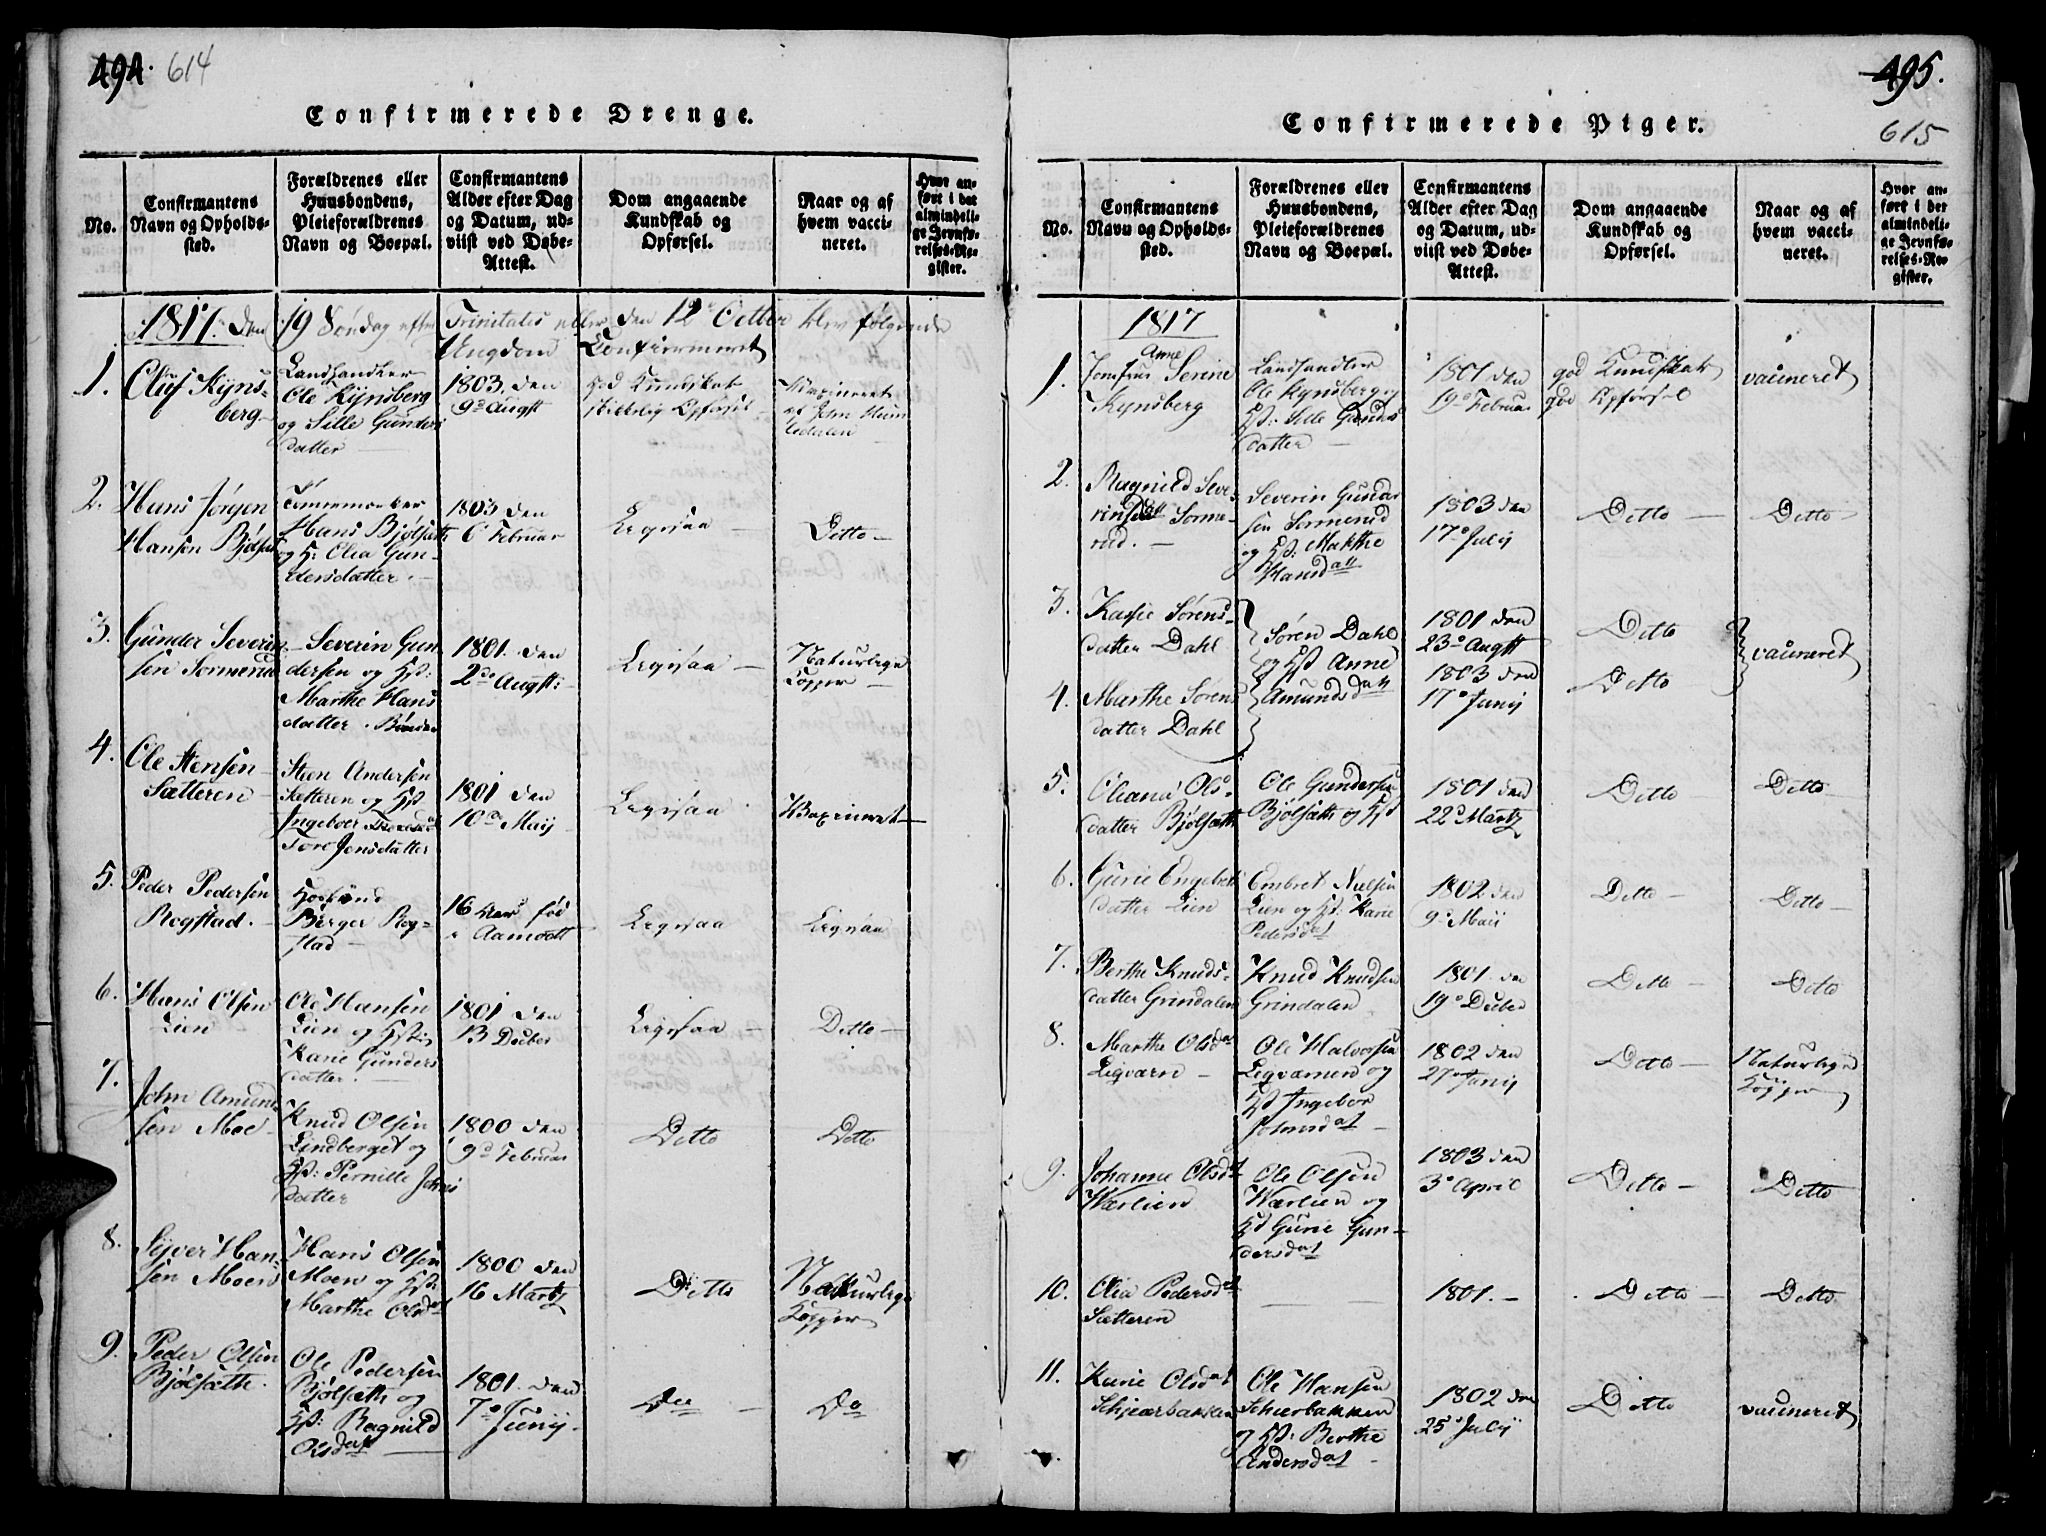 494. 614
Confirmerede Drenge.
No.
Confirmantens
Navn og Opholds-
sted.
Forældrenes eller
Huusbondens,
Pleieforældrenes
Navn og Boepæl.
Confirmantens
Alder efter Dag
og Datum, ud-
viist ved Døbe-
Attest.
Dom angaaende
Kundskab og
Opførsel.
Naar og af
hvem vacci-
neret.
Hvor an-
ført i det
almindeli-
ge Jevnfø-
relses-Re-
gister.
1817. den 19 Søndag efter Trinitatis eller den 12te October blev følgende
Ungdom Confirmeret
1.
Oluf Kyns-
berg
Landhandler
Ole Kynsberg
og Sille Gunders
datter
1803. den
9de Augst
god Kundskab
skikkelig Opførsel
Waxineret
af John
2.
Hans Jørgen
Hansen Bjølset
Hans Bjølseth
og H: Olia Gun-
dersdatter.
1803 den
6 Februar
Ligesaa
Ditto
3.
Gunder Severin
sen Sormerud
Severin Gun
dersen og Hst:
Marthe Hans
datter. Bønder
1801. den
2de Augst:
Ligesaa
Naturlige
Kopper
4.
Ole Stensen
Sætteren
Steen Andersen
Sætteren og Hst
Ingeboer
Tore Jensdatter
1801 den
10de Maij
Ligesaa
Waxineret
5.
Peder Pedersen
Rogstad.
Huusbond
Børger Rog-
stad
16 Aar fød
i Aamodt
Ligesaa
Ligesaa
6.
Hans Olsen
Lien
Ole Hansen
Lien og Hst:
Karie Gunders
datter.
1801 den
13 Decber
Ligesaa
Ditto
7.
John Amund
sen Moe
Knud Olsen
Lindberget og
Hst: Pernille Johns
datter
1800 den
9de Februar
Ditto
Ditto
8.
Syver Han-
sen Moen
Hans Olsen
Moen og Hst:
Marthe Olsdat
1800 den
16 Martz
Ditto
Naturlige
Kopper
9.
Peder Olsen
Bjølsæth.
Ole Pedersen
Bjølsæth og
Hst: Ragnild
Olsdatt
1801. den
7de Junij.
Do
Do
495.
615
Confirmerede Piger.
No.
Confirmantens
Navn og Opholds-
sted.
Forældrenes eller
Huusbondens,
Pleieforældrenes
Navn og Boepæl.
Confirmantens
Alder efter Dag
og Datum, ud-
viist ved Døbe-
Attest.
Dom angaaende
Kundskab og
Opførsel.
Naar og af
hvem vacci-
neret.
Hvor an-
ført i det
almindeli-
ge Jevnfø-
relses-Re-
gister.
1817
1.
Anne
Jomfrue Serine
Kynsberg
Landhandler
Ole Kynsberg og
Hst: Sille Gunders
datter
1801 den
19de Februar
god Kundskab
god Opførsel
vacineret
2.
Ragnild Seve-
rinsdatt Sorme-
rud.
Severin Gunder
sen Sormerud
og Hst: Makthe
Hansdatt
1803 den
17de Julij
Ditto
Ditto
3.
Kassie Sørens-
datter Dahl
Søren Dahl
og Hst Anne
Amundsdatt
1801 den
23de Augst
Ditto
vacineret
4.
Marthe Sørens
datter Dahl
1803 den
17de Junij
Ditto
5.
Oliana Ols-
datter Bjølsæth
Ole Gundersen
Bjølsæth og Hst
1801 den
22de Martz
Ditto
Ditto
6.
Gurie Engebrets
datter Lien
Embret Nielsen
Lien og Hst: Karie
Pedersdat
1802 den
9de Maij
Ditto
Ditto
7.
Berthe Knuds-
datter Grindalen
Knud Knudsen
Grindalen
1801. den
19de Decber
Ditto
Ditto
8.
Marthe Olsdat
Ligvarn
Ole Halvorsen
Ligvarnen og
Hst Ingebor
Johnsdat
1802 den
27de Junij
Ditto
Naturlige
Kopper
9.
Johanne Olsdat
Wærlien
Ole Olsen
Wærlien og
Hst Gurie Gun-
dersdat
1803 den
3de April
Ditto
Ditto
10.
Olia Pedersdat
Sætteren
1801.
Ditto
Ditto
11.
Karie Olsdat
Schjærbakken
Ole Hansen
Schærbakken
og Hst: Berthe
Andersdat
1802 den
25de Julij
Ditto
vacineret